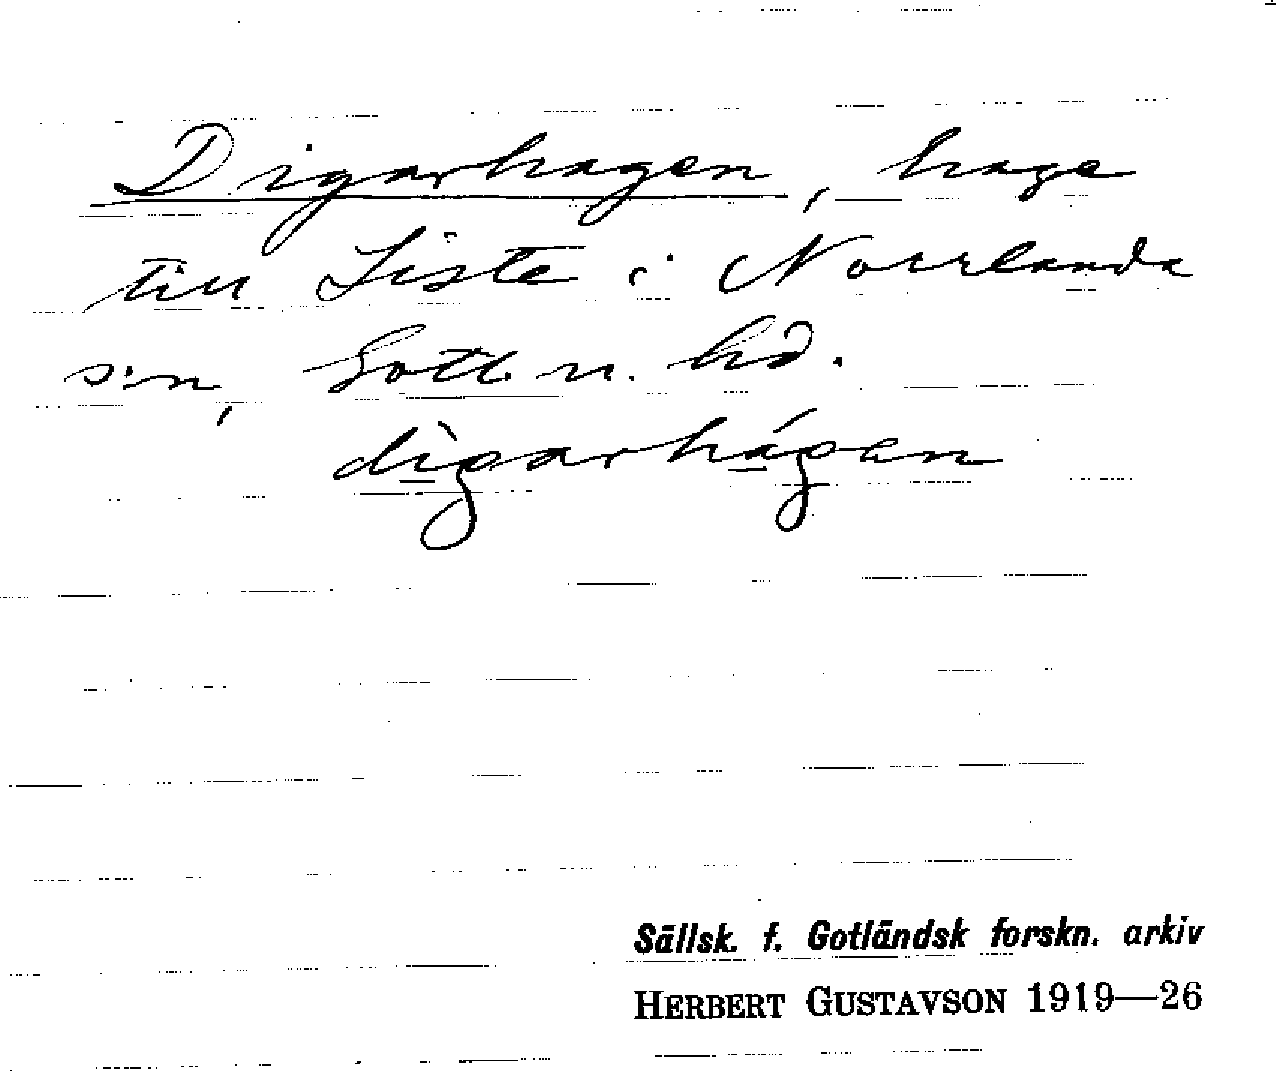 Digarhagen, hage
till Liste i Norrlanda
s:n, Gotl. n. hd.
dìgarhágen
Sällsk. f. Gotländsk forskn. arkiv
HERBERT GUSTAVSON 1919—26